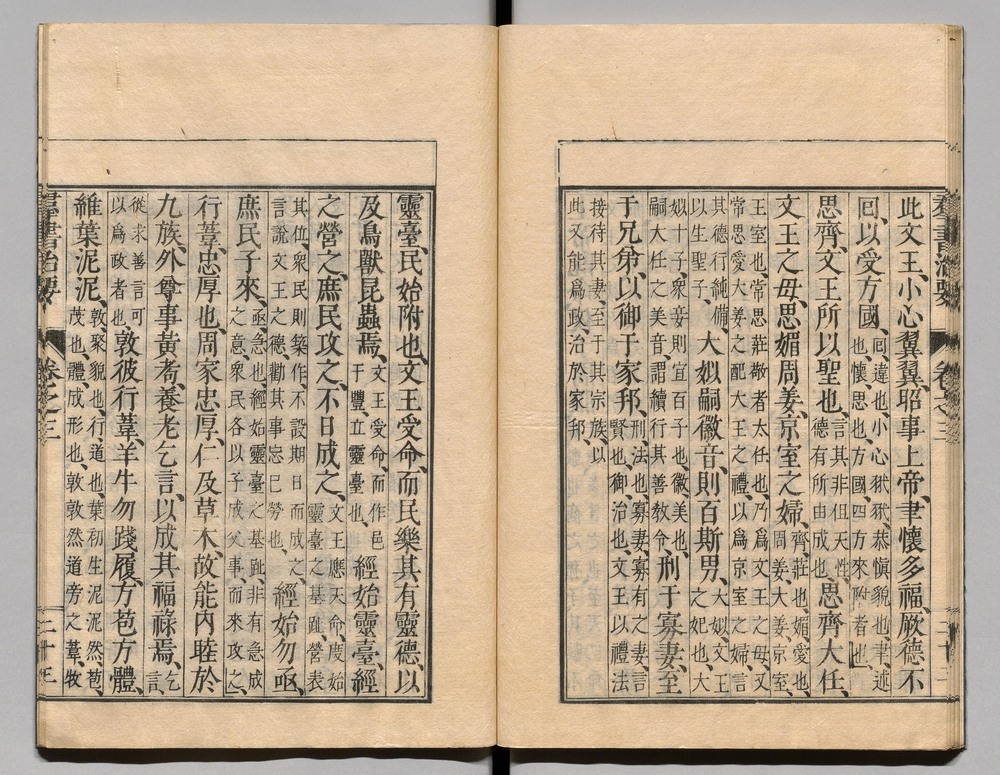 羣書治要 卷之三
此文王、小心翼翼、昭事上帝、聿懷多福、厥德不
回、以受方國、回、違也、小心翼翼、恭愼貌也、聿、述也、懷、思也、方國、四方來附者也、
思齊、文王所以聖也、言其非但天性、德有所由成也、思齊大任、
文王之母、思媚周姜、京室之婦、齊、莊也、媚、愛也、周姜、大姜、京室、
王室也、常思莊敬者大任也、乃爲文王之母、又常思愛大姜之配大王之禮、以爲京室之婦、言
其德行純備、以生聖子、大姒嗣徽音、則百斯男、大姒、文王之妃也、大
姒十子、衆妾則宜百子也、徽、美也、嗣大任之美音、謂續行其善教令、刑于寡妻、至
于兄弟、以御于家邦、刑、法也、寡妻、寡有之妻、言賢也、御、治也、文王以禮法
接待其妻、至于其宗族、以此又能爲政治於家邦、
靈臺、民始附也、文王受命、而民樂其有靈德、以
及鳥獸昆蟲焉、文王受命、而作邑于豐、立靈臺也、經始靈臺、經
之營之、庶民攻之、不日成之、文王應天命、度始靈臺之基趾、營表
其位、衆民則築作、不設期日而成之、言說文王之德、勸其事忘已勞也、經始勿亟、
庶民子來、亟、急也、經始靈臺之基趾、非有急成之意、衆民各以子成父事、而來攻之、
行葦、忠厚也、周家忠厚、仁及草木、故能内睦於
九族、外尊事黃耇、養老乞言、以成其福祿焉、乞言、
從求善言可以爲政者也、敦彼行葦、羊牛勿踐履、方苞方體、
維葉泥泥、敦、聚貌也、行、道也、葉初生泥泥然、苞、茂也、體、成形也、敦敦然道旁之葦、牧
羣書治要 卷之三 二十三